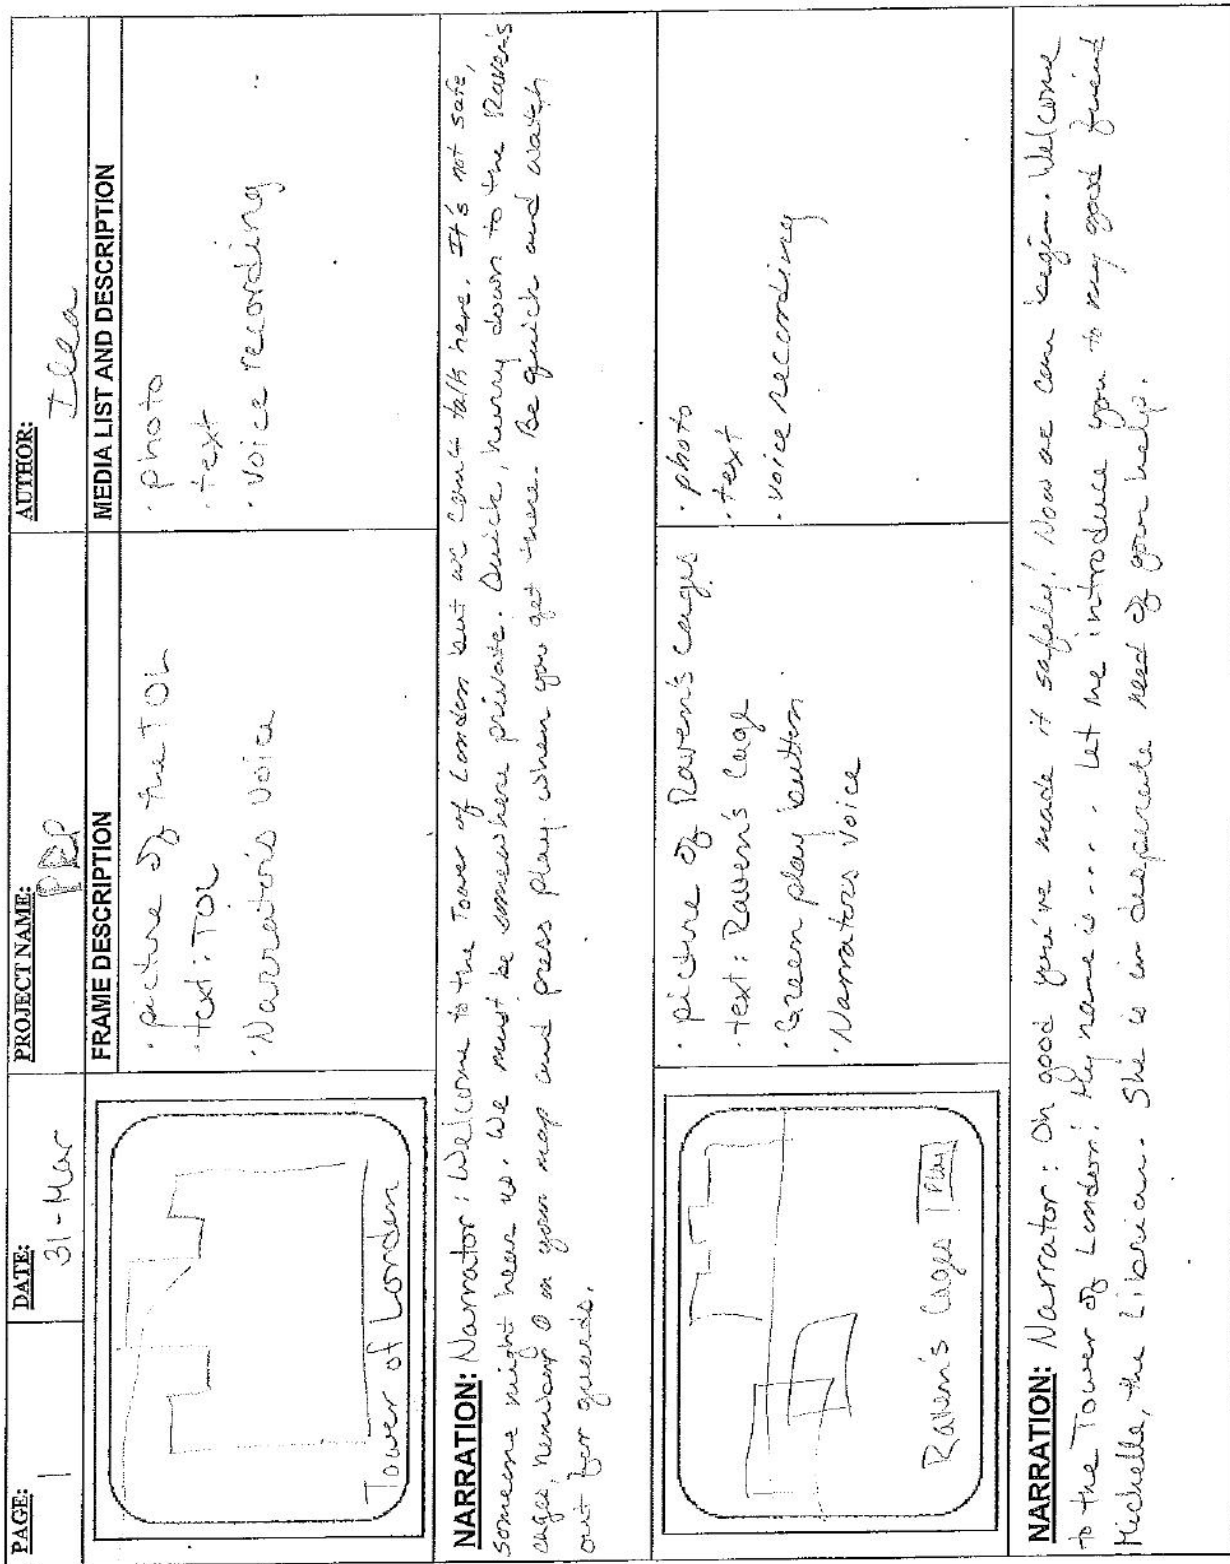 PAGE: 1
DATE: 31-Mar
PROJECT NAME: PRP
AUTHOR:
FRAME DESCRIPTION
MEDIA LIST AND DESCRIPTION
Tower of London
· picture of the TOL
· text: TOL
· Narrator's voice
· photo
· text
· voice recording
NARRATION: Narrator: Welcome to the Tower of London but we can't talk here. It's not safe,
someone might hear us. We must be somewhere private. Quick, hurry down to the Raven's
cages, number 0 on your map and press play when you get there. Be quick and watch
out for guards.
Raven's Cages Play
· picture of Raven's Cages
· text: Raven's Cage
· Green play button
· Narrators voice
· photo
· text
· voice recording
NARRATION: Narrator: Oh good you've made it safely! Now we can begin. Welcome
to the Tower of London! My name is .... Let me introduce you to my good friend
Michelle, the Librarian. She is in desperate need of your help.